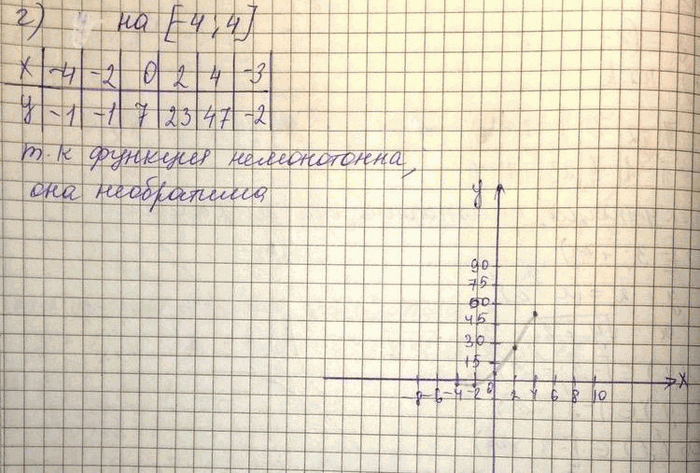 г) на [-4; 4]
x -4 -2 0 2 4 -3
y -1 -1 7 23 47 -2
т.к функция немонотонна,
она необратима
y
90
75
60
45
30
15
-8 -6 -4 -2 0 2 4 6 8 10 x